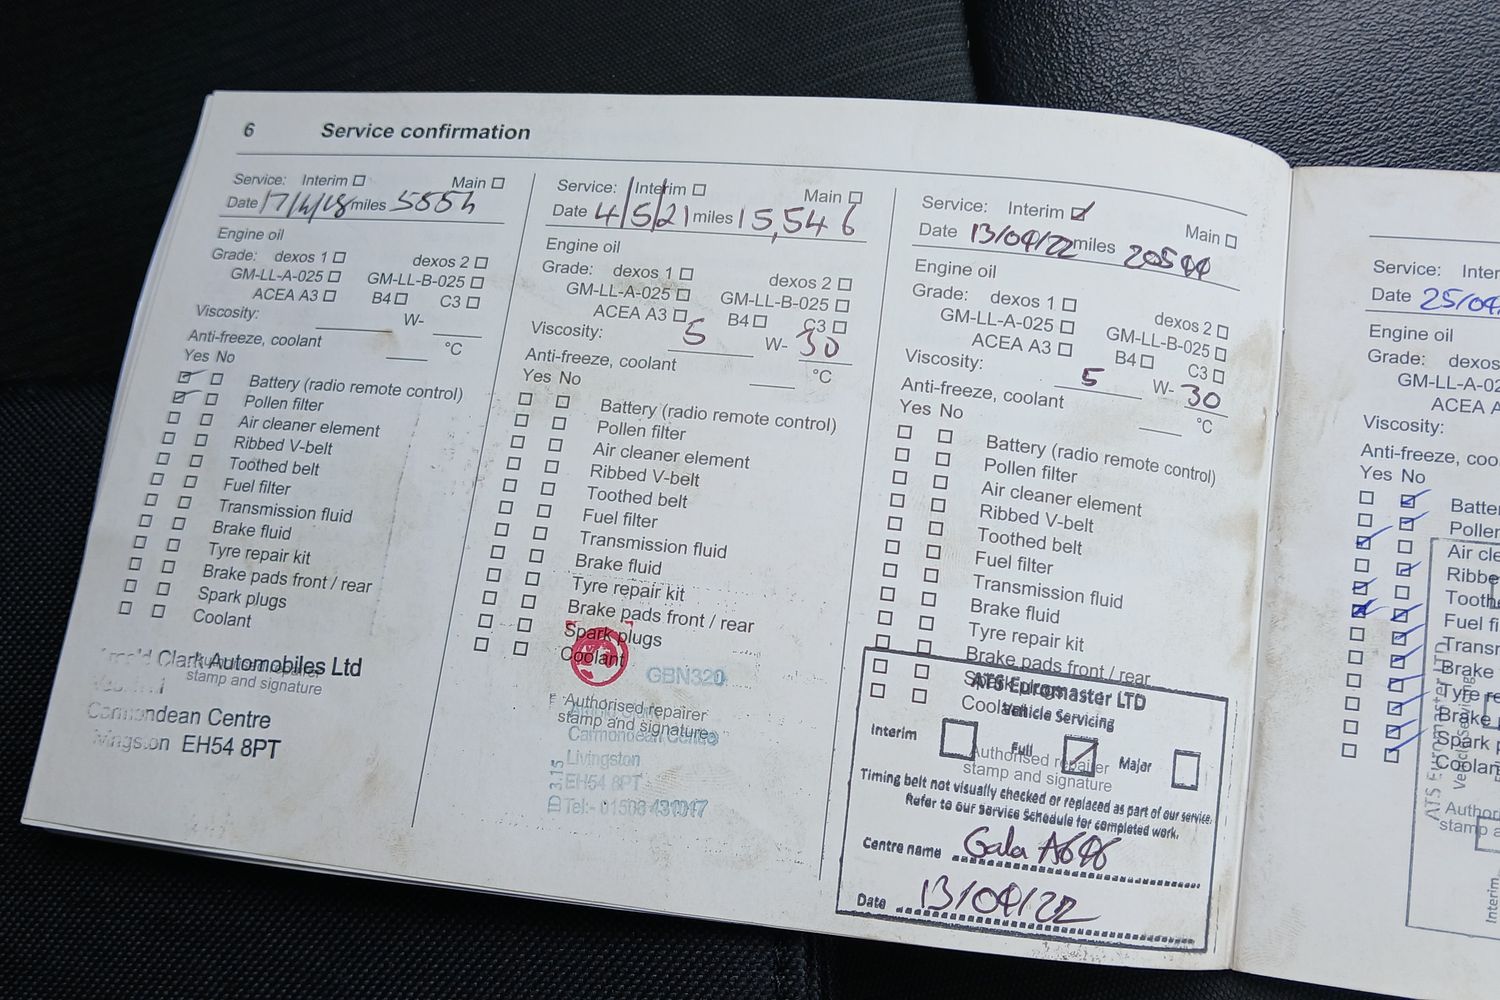 6 Service confirmation
Service: Interim Main
Date 17/4/18 miles 5554
Engine oil
Grade: dexos 1 dexos 2
GM-LL-A-025 GM-LL-B-025
ACEA A3 B4 C3
Viscosity: W-
Anti-freeze, coolant °C
Yes No
Battery (radio remote control)
Pollen filter
Air cleaner element
Ribbed V-belt
Toothed belt
Fuel filter
Transmission fluid
Brake fluid
Tyre repair kit
Brake pads front / rear
Spark plugs
Coolant
Arnold Clark Automobiles Ltd
Authorised repairer
stamp and signature
Carmondean Centre
Livingston EH54 8PT
Service: Interim Main
Date 4/5/21 miles 15,546
Engine oil
Grade: dexos 1 dexos 2
GM-LL-A-025 GM-LL-B-025
ACEA A3 B4 C3
Viscosity: 5 W- 30
Anti-freeze, coolant °C
Yes No
Battery (radio remote control)
Pollen filter
Air cleaner element
Ribbed V-belt
Toothed belt
Fuel filter
Transmission fluid
Brake fluid
Tyre repair kit
Brake pads front / rear
Spark plugs
Coolant
GBN320
Authorised repairer
stamp and signature
Carmondean Centre
Livingston
EH54 8PT
Tel:- 01506 431047
Service: Interim Main
Date 13/04/22 miles 20544
Engine oil
Grade: dexos 1 dexos 2
GM-LL-A-025 GM-LL-B-025
ACEA A3 B4 C3
Viscosity: 5 W- 30
Anti-freeze, coolant °C
Yes No
Battery (radio remote control)
Pollen filter
Air cleaner element
Ribbed V-belt
Toothed belt
Fuel filter
Transmission fluid
Brake fluid
Tyre repair kit
Brake pads front / rear
Spark plugs
Coolant
ATS Euromaster LTD
Vehicle Servicing
Interim Full Major
Authorised repairer
stamp and signature
Timing belt not visually checked or replaced as part of our service.
Refer to our Service Schedule for completed work.
Centre name Gala
Date 13/04/22
Service: Inter
Date 25/04
Engine oil
Grade: dexos
GM-LL-A-02
ACEA A
Viscosity:
Anti-freeze, coo
Yes No
Batte
Pollen
Air cle
Ribbe
Tooth
Fuel fi
Transm
Brake
Tyre re
Brake
Spark p
Coolan
ATS Euromaster LTD
Author
stamp a
Interim